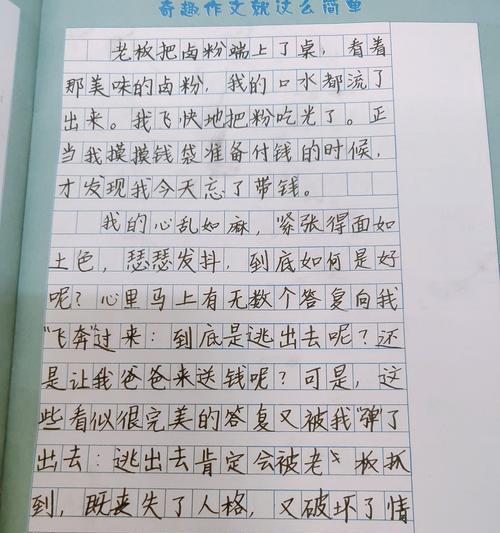 奇趣作文就这么简单
老板把卤粉端上了桌，看着
那美味的卤粉，我的口水都流了
出来。我飞快地把粉吃光了。正
当我摸摸钱袋准备付钱的时候，
才发现我今天忘了带钱。
我的心乱如麻，紧张得面如
土色，瑟瑟发抖，到底如何是好
呢？心里马上有无数个答复向我
“飞奔”过来：到底是逃出去呢？还
是让我爸爸来送钱呢？可是，这
些看似很完美的答复又被我“弹”了
出去：逃出去肯定会被老板抓
到，既丧失了人格，又破坏了情